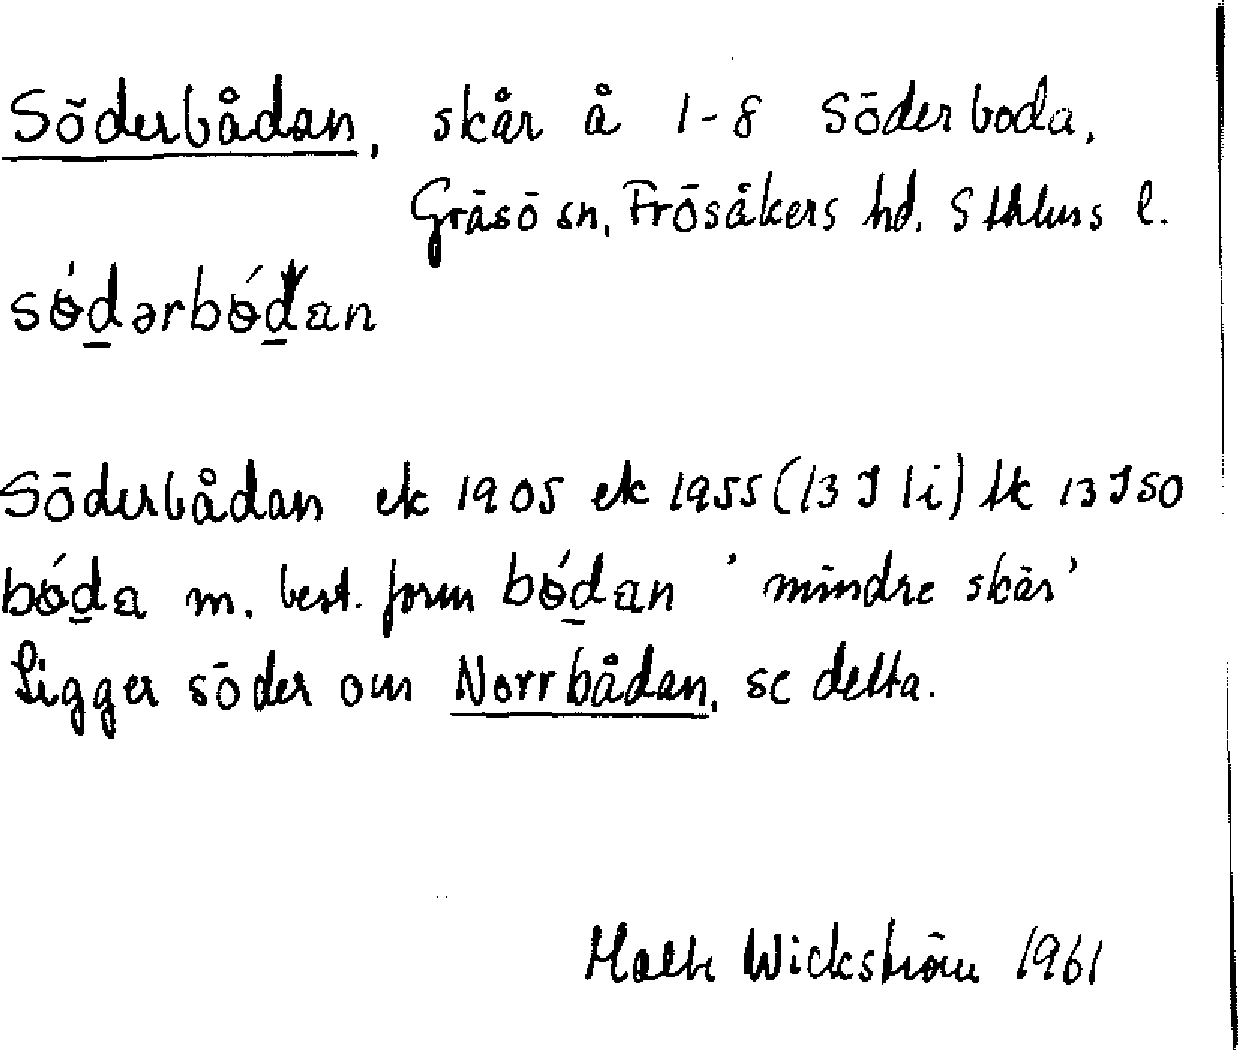 Söderbådan, skär å 1-8 Söderboda,
Gräsö sn, Frösåkers hd. Sthlms l.
sɵ́d̲ərbɵ́d̲an
Söderbådan ek 1905 ek 1955 (13 I 1i) tk 13 I SO
bɵ́d̲a m. best. form bɵ́d̲an 'mindre skär'
Ligger söder om Norrbådan, se detta.
Wickström 1961